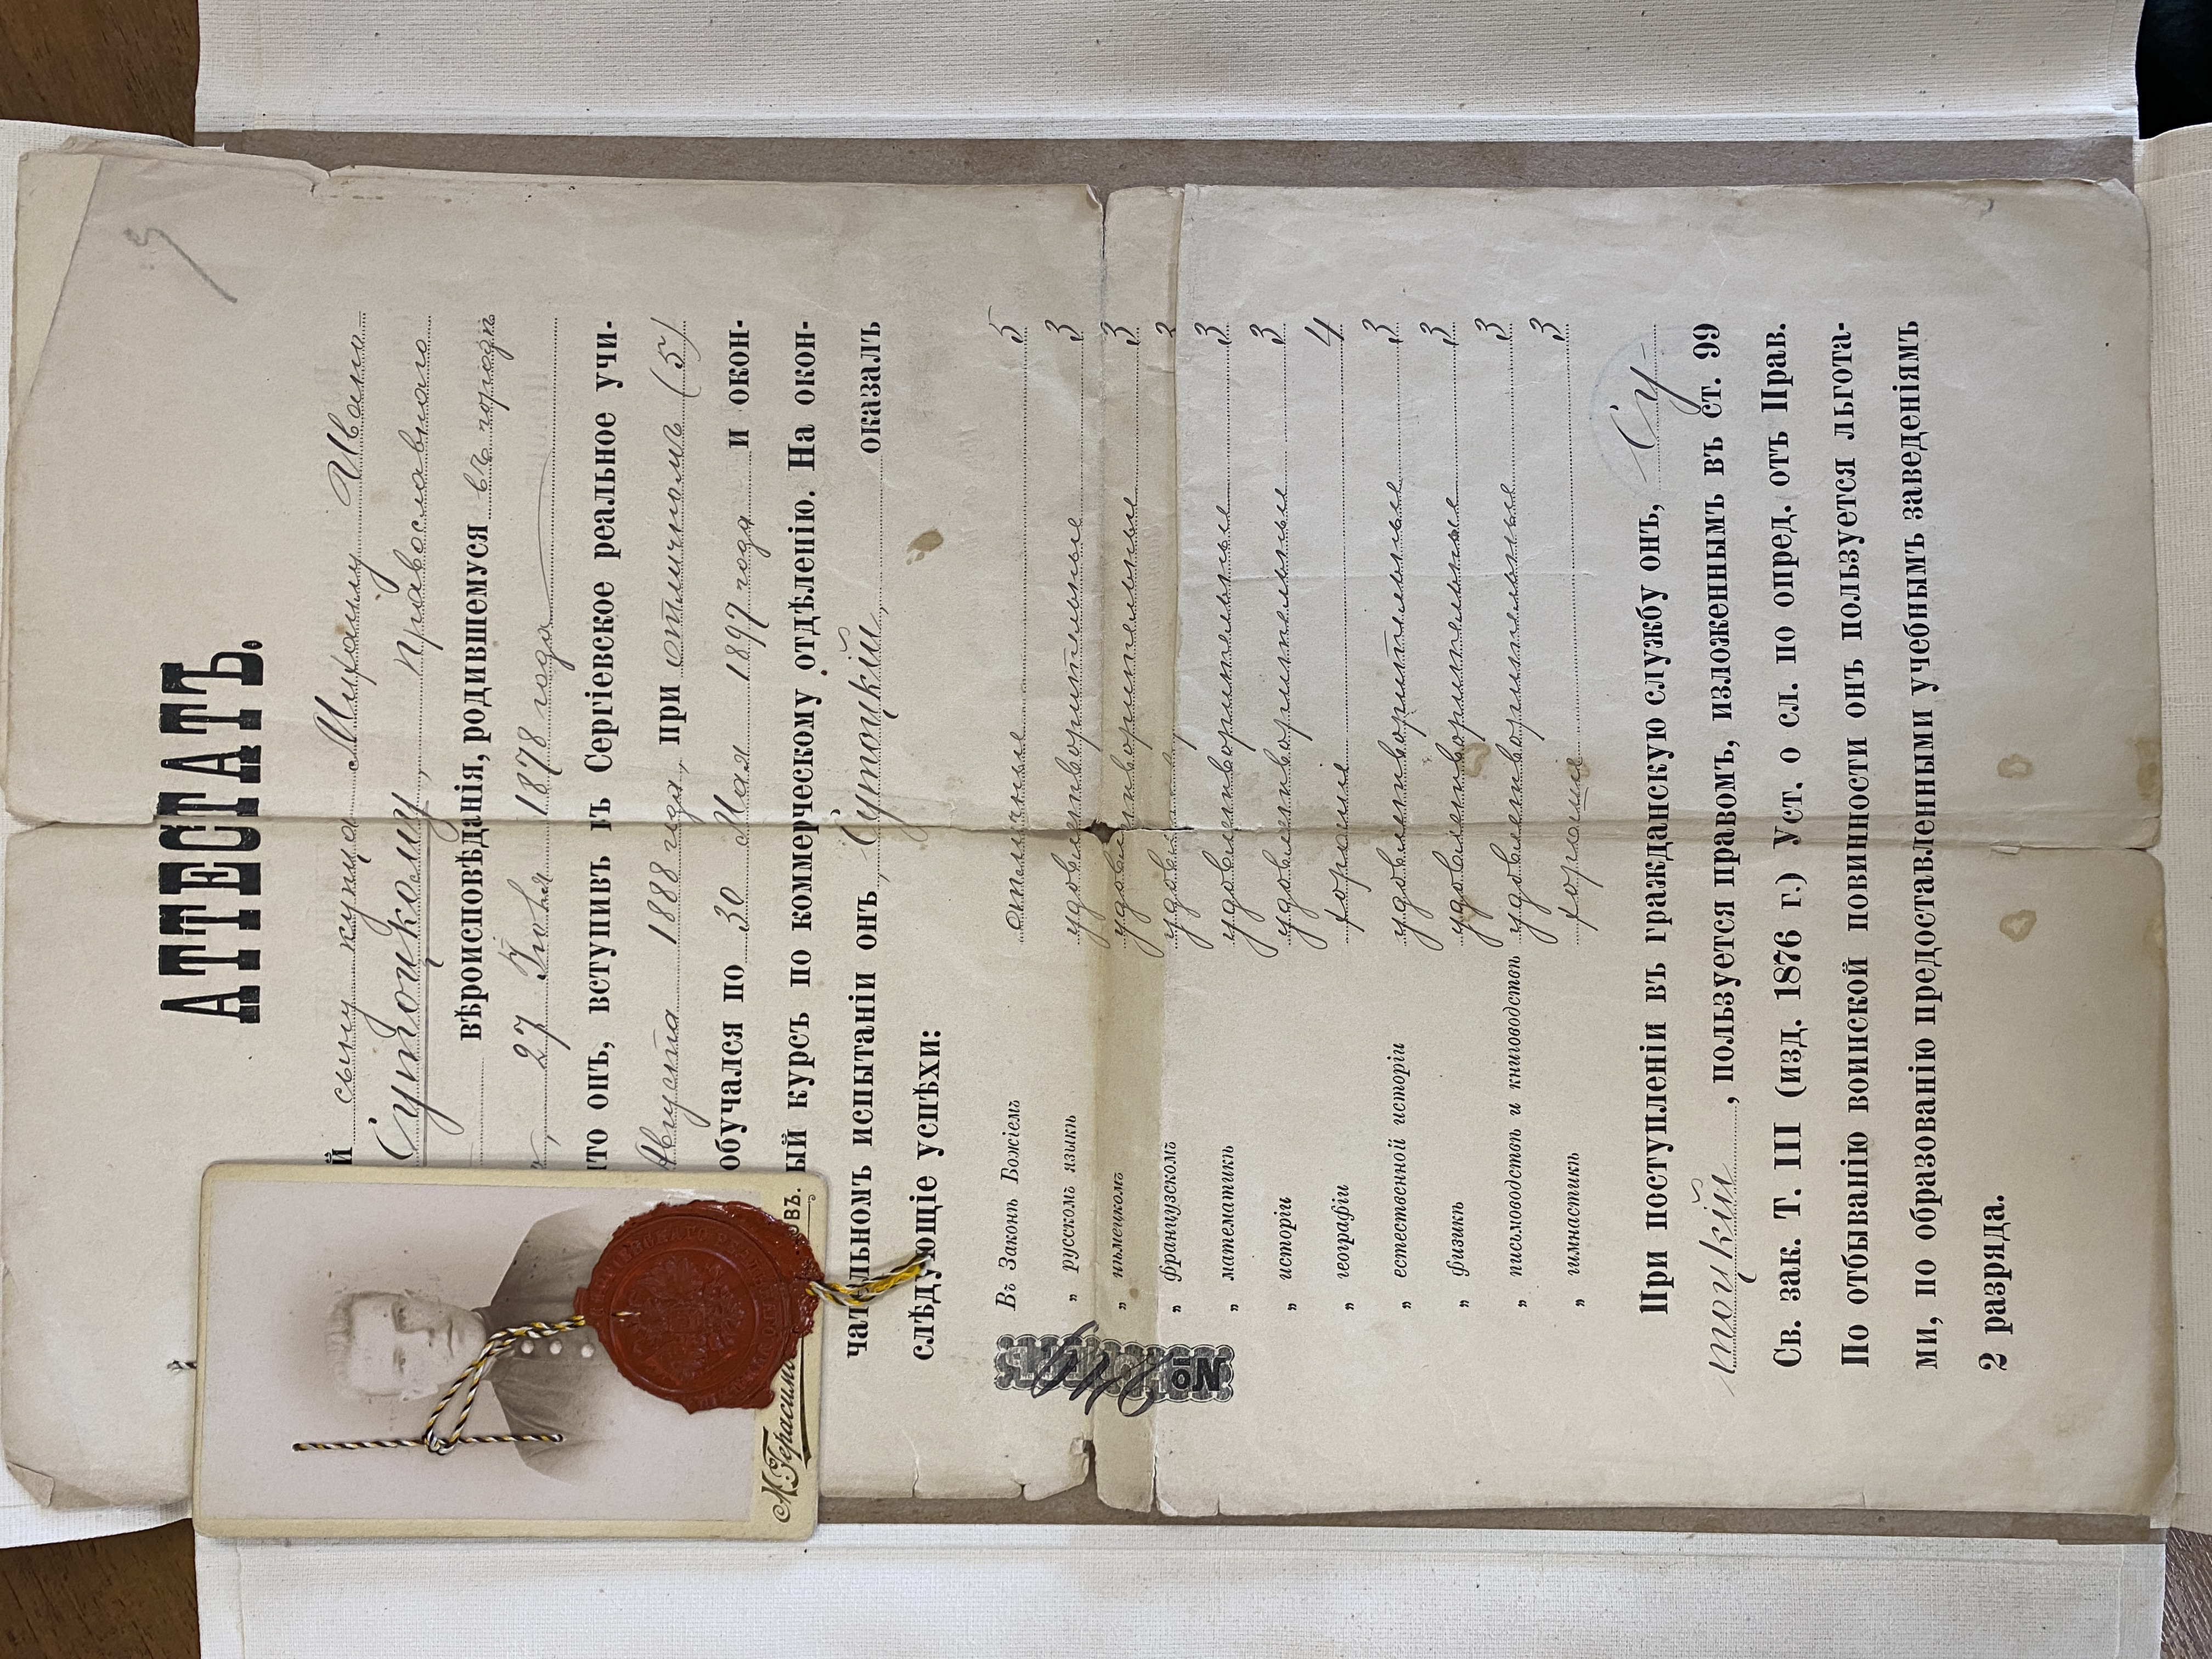 АТТЕСТАТЪ.
й сыну купца Михаилу Ивано
Сутоцкому, православнаго
вѣроисповѣданія, родившемуся въ городѣ
27 Іюня 1878 года
что онъ, вступивъ въ Сергіевское реальное учи-
Августа 1888 года, при отличномъ (5)
обучался по 30 Мая 1897 года и окон-
ый курсъ по коммерческому отдѣленію. На окон-
чательномъ испытаніи онъ, Сутоцкій, оказалъ
слѣдующіе успѣхи:
Въ Законѣ Божіемъ отличные 5
„ русскомъ языкѣ удовлетворительные 3
„ нѣмецкомъ удовлетворительные 3
„ французскомъ 3
„ математикѣ удовлетворительные 3
„ исторіи удовлетворительные 3
„ географіи хорошіе 4
„ естественной исторіи удовлетворительные 3
„ физикѣ удовлетворительные 3
„ письмоводствѣ и книговодствѣ удовлетворительные 3
„ гимнастикѣ хорошіе 3
При поступленіи въ гражданскую службу онъ, Су-
тоцкій, пользуется правомъ, изложеннымъ въ ст. 99
Св. зак. Т. III (изд. 1876 г.) Уст. о сл. по опред. отъ Прав.
По отбыванію воинской повинности онъ пользуется льгота-
ми, по образованію предоставленными учебнымъ заведеніямъ
2 разряда.
М. Герасим овъ.
№